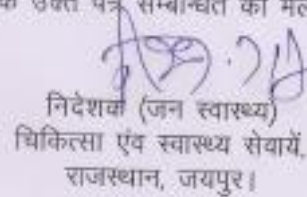 क उक्त पत्र सम्बन्धित को मे
निदेशक (जन स्वास्थ्य)
चिकित्सा एंव स्वास्थ्य सेवायें,
राजस्थान, जयपुर।